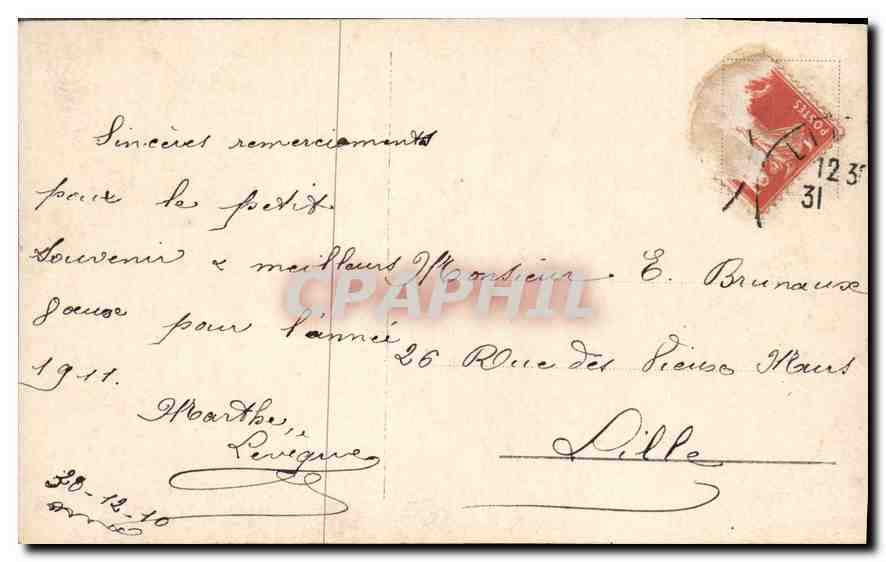 Sincères remerciements
pour le petit
souvenir & meilleurs
pour l'année
1911.
Marthe
Levêque
30-12-10
Monsieur E. Brunaux
26 Rue des Vieux Murs
Lille
POSTES
12 3
31
CPAPHIL